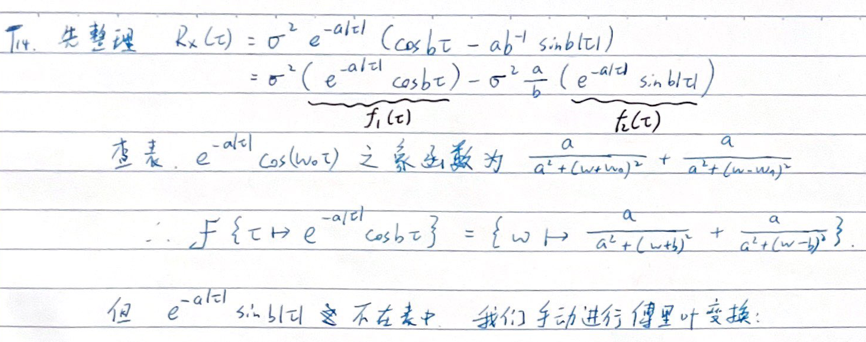 T14. 先整理 Rx(τ) = σ² e^{-a|τ|} (cosbτ - ab⁻¹ sinb|τ|)
= σ² (e^{-a|τ|} cosbτ) - σ² a/b (e^{-a|τ|} sinb|τ|)
f₁(τ) f₂(τ)
查表. e^{-a|τ|} cos(ω₀τ) 之象函数为 a/(a²+(ω+ω₀)²) + a/(a²+(ω-ω₀)²)
∴ F{τ ↦ e^{-a|τ|} cosbτ} = {ω ↦ a/(a²+(ω+b)²) + a/(a²+(ω-b)²)}.
但 e^{-a|τ|} sinb|τ| 不在表中. 我们手动进行傅里叶变换: